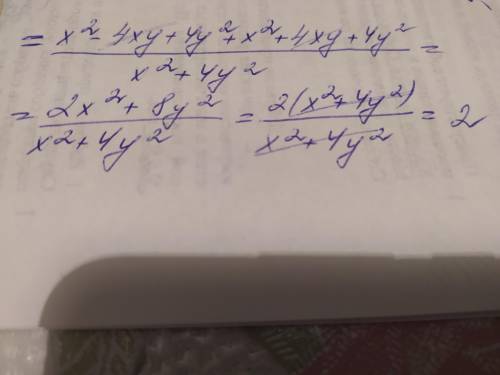 = x² - 4xy + 4y² + x² + 4xy + 4y² / x² + 4y² =
= 2x² + 8y² / x² + 4y² = 2(x² + 4y²) / x² + 4y² = 2